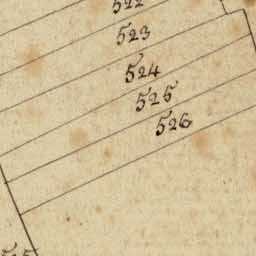 522
523
524
525
526